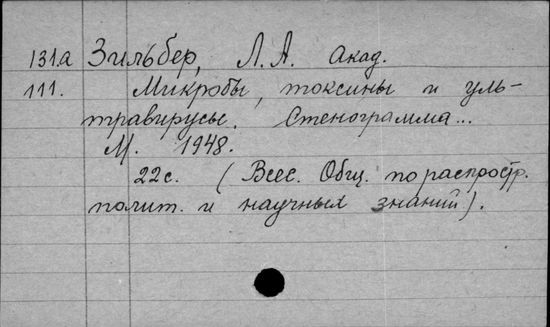 131а Зильбер, Л.А. Акад.
111. Микробы, токсины и уль-
травирусы. Стенограмма...
М. 1948.
22с. (Всес. Общ. по распростр.
полит. и научных знаний).